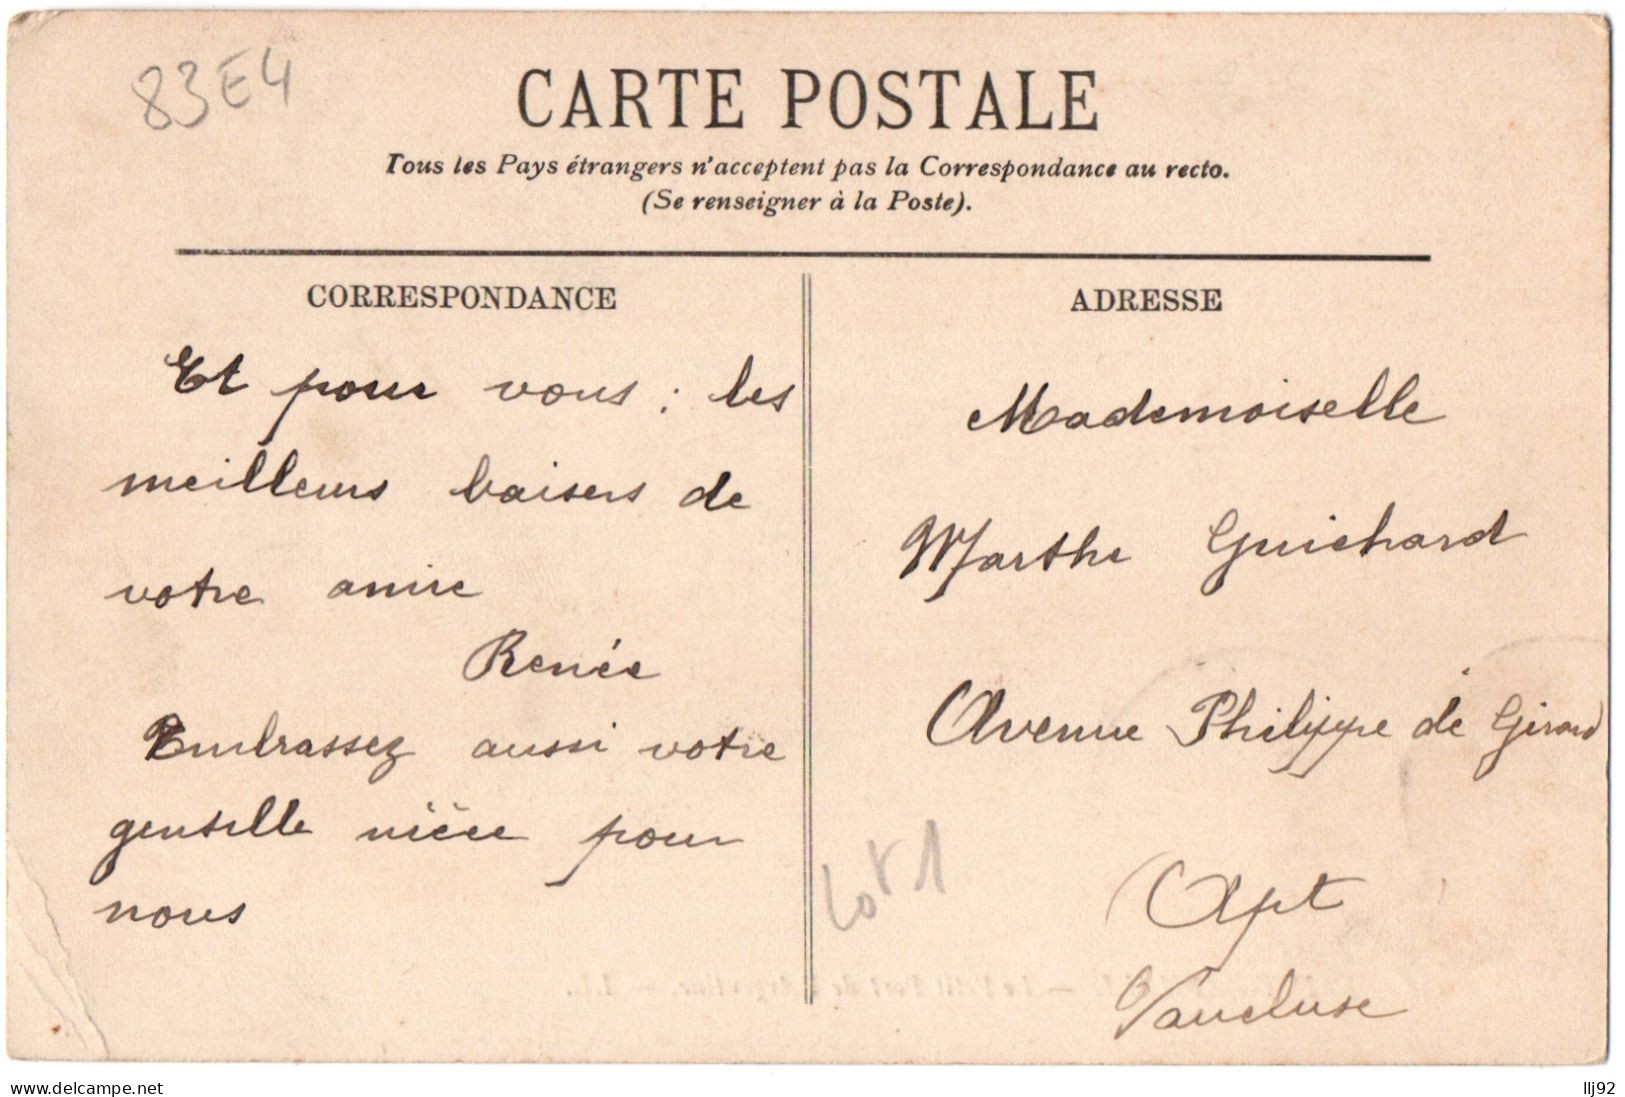 83E4
CARTE POSTALE
Tous les Pays étrangers n'acceptent pas la Correspondance au recto.
(Se renseigner à la Poste).
CORRESPONDANCE
Et pour vous : les
meilleurs baisers de
votre amie
Renée
Embrassez aussi votre
gentille nièce pour
nous
ADRESSE
Mademoiselle
Marthe Guichard
Avenue Philippe de Girard
Apt
Vaucluse
Lot 1
www.delcampe.net
llj92